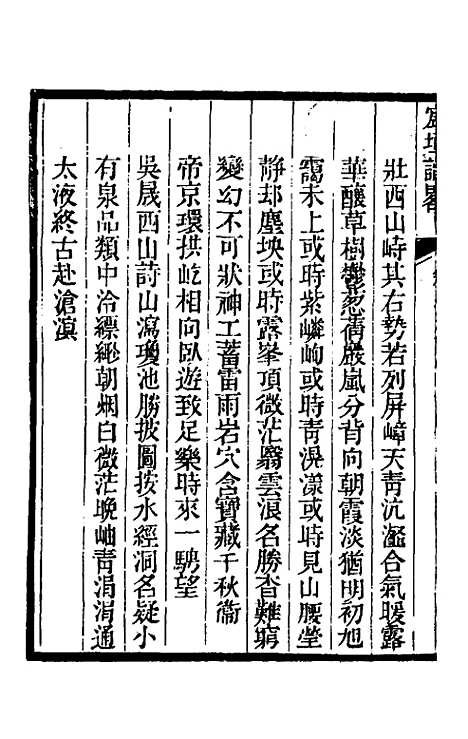 宸垣識畧
壯西山峙其右勢若列屏嶂天青沆瀣合氣暖露
華釀草樹鬱葱蒨巖嵐分背向朝霞淡猶明初旭
靄未上或時紫嶙峋或時青滉漾或時見山腰瑩
静却塵坱或時露峯頂微茫翳雲浪名勝杳難窮
變幻不可狀神工蓄雷雨岩穴含寶藏千秋衞
帝京環拱屹相向臥遊致足樂時來一騁望
吳晟西山詩山瀉瓊池勝披圖按水經洞名疑小
有泉品類中泠縹緲朝烟白微茫晚岫青涓涓通
太液終古赴滄溟